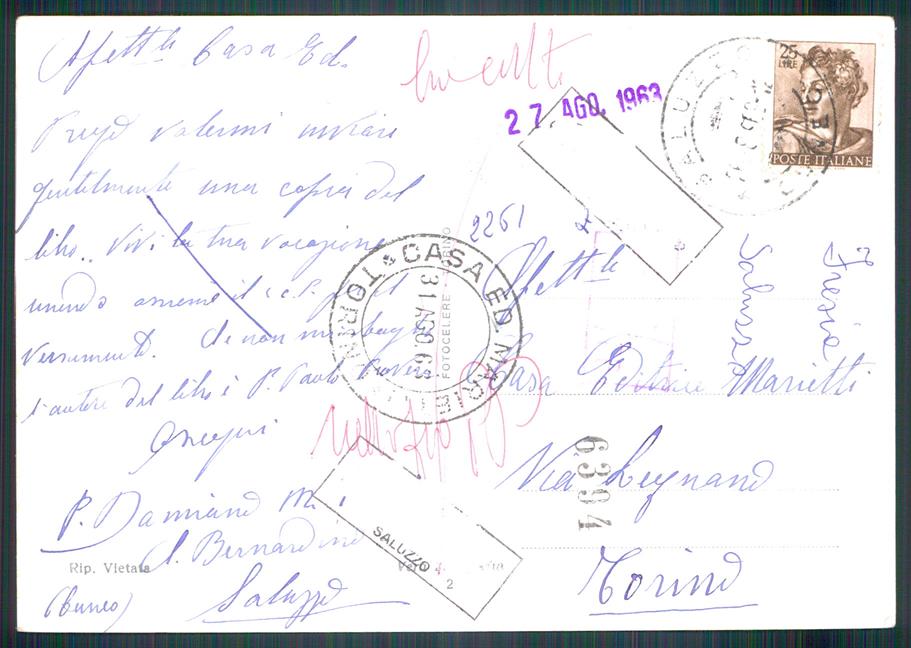 Casa Ed.
27 AGO. 1963
25
LIRE
POSTE ITALIANE
Prego volermi inviare
gentilmente una copia del
libro.. Vivi la tua vocazione
unendo assieme il c.c.P. pel
versamento. Se non mi sbaglio
l'autore del libro è P. Paolo
Ossequi
P. Damiano M.
S. Bernardino
Saluzzo
(Cuneo)
Rip. Vietata
CASA ED. MARIETTI TORINO
31 AGO 63
FOTOCELERE
2261
Spett.le
Casa Editrice Marietti
Via Legnano
Torino
6394
Saluzzo
SALUZZO
2